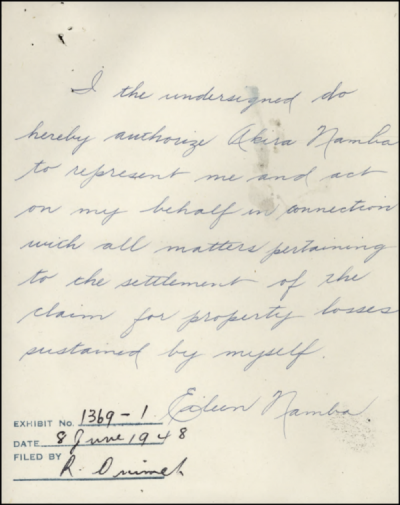 I the undersigned do
hereby authorize Akira Namba
to represent me and act
on my behalf in connection
with all matters pertaining
to the settlement of the
claim for property losses
sustained by myself.
Eileen Namba.
EXHIBIT No. 1369-1
DATE 8 June 1948
FILED BY
R.